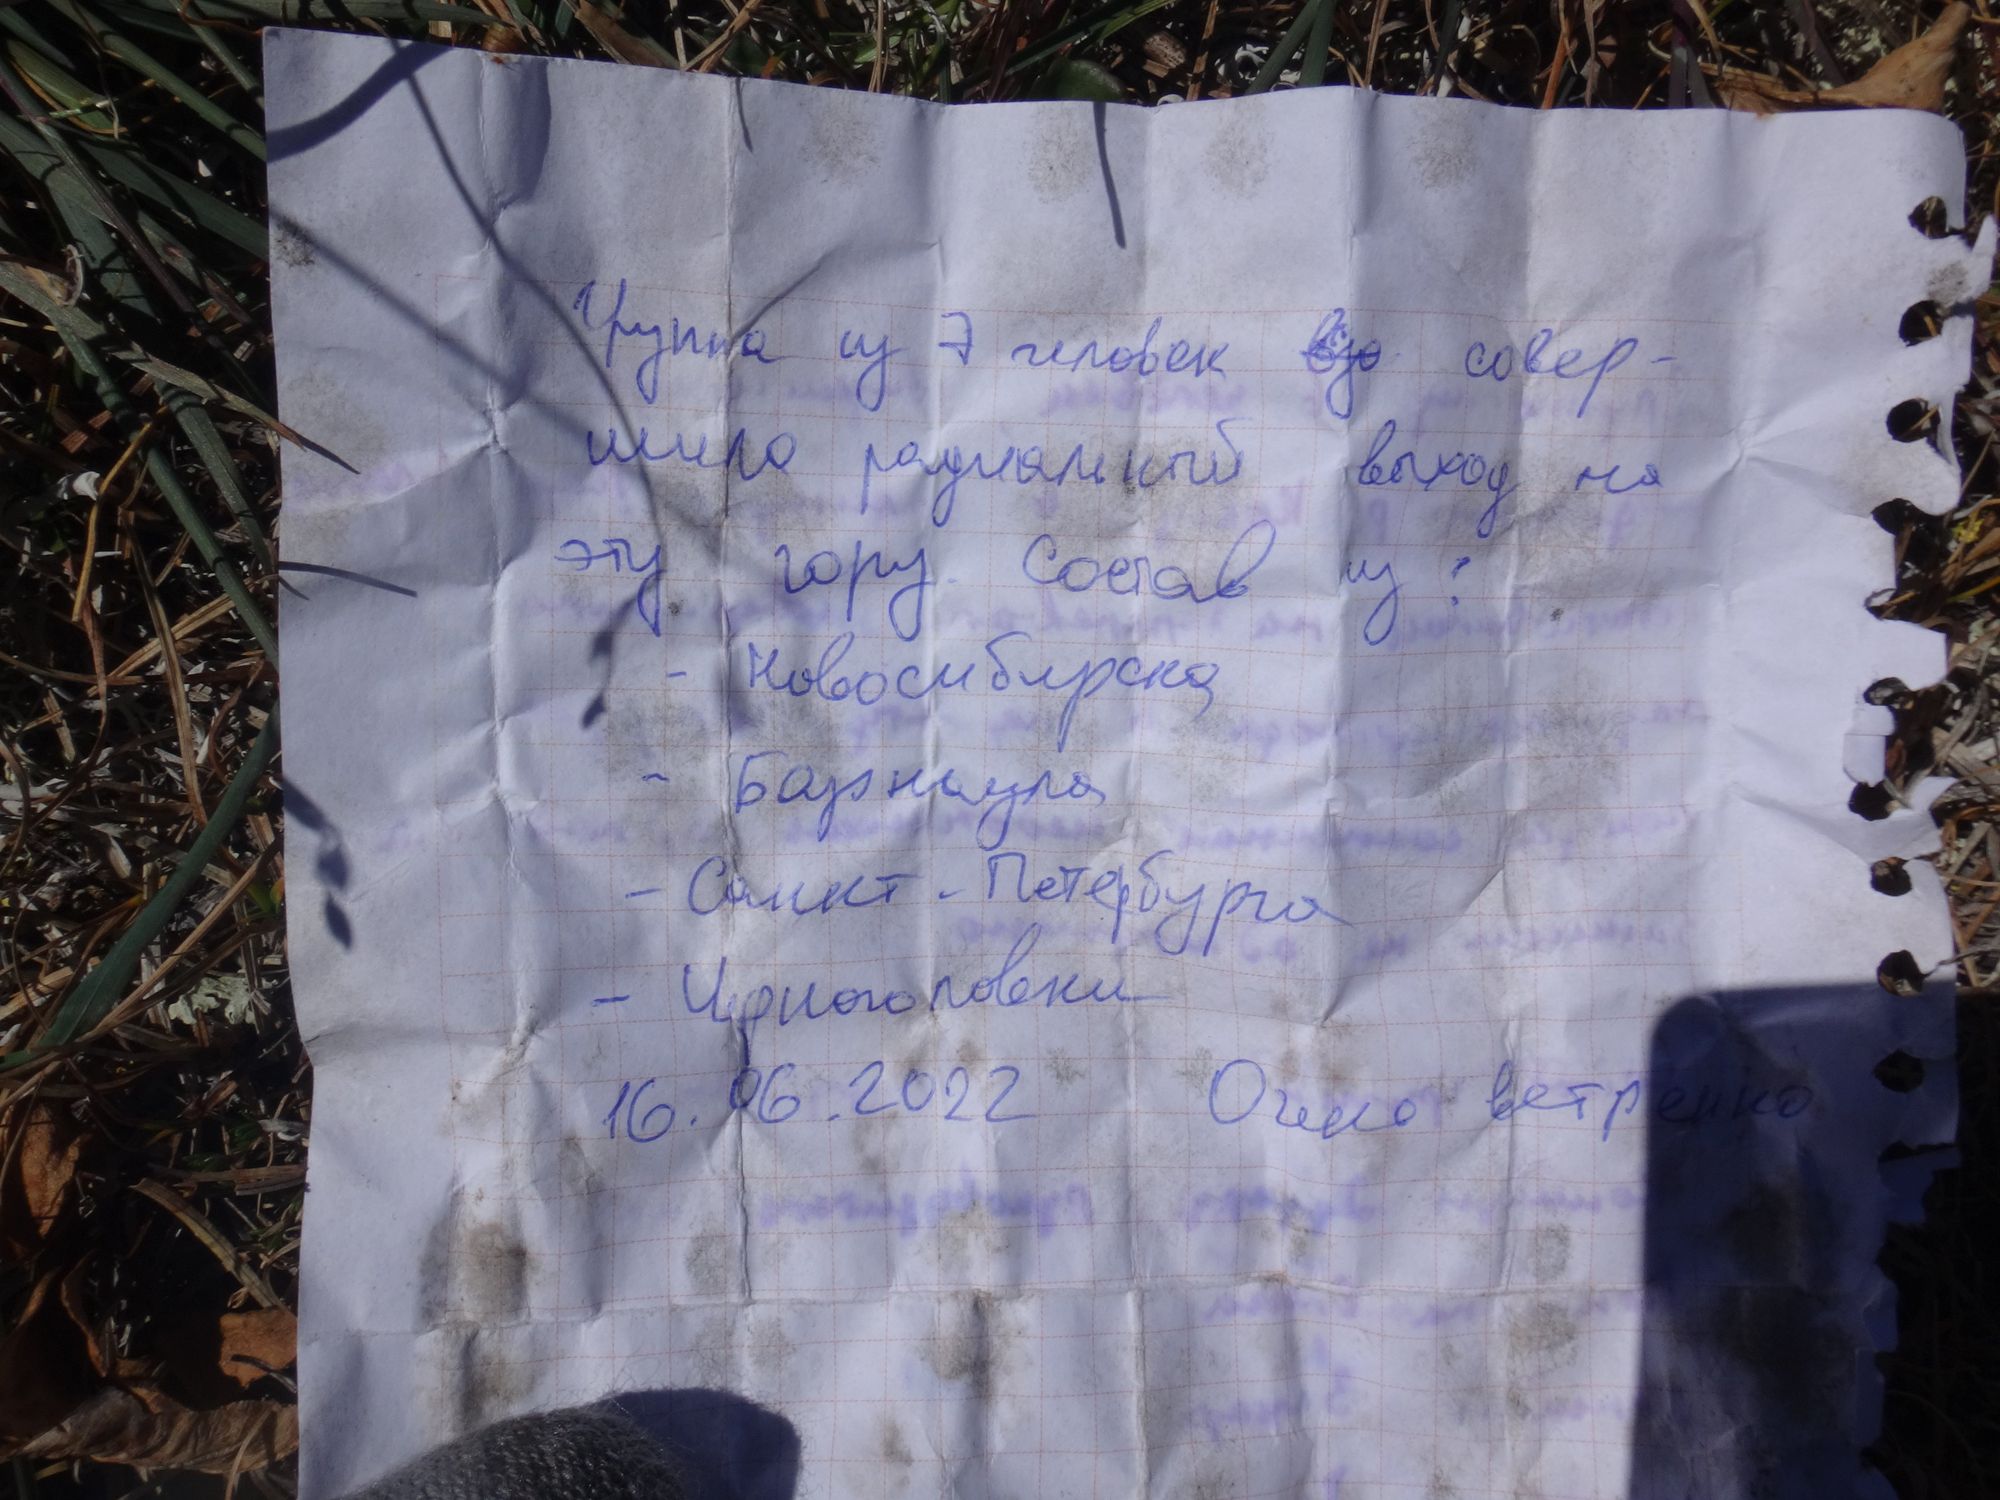 Группа из 7 человек совер-
шила радиальный выход на
эту гору. Состав из:
- Новосибирска
- Барнаула
- Санкт-Петербурга
- Черноголовки
16.06.2022 Очень ветренно